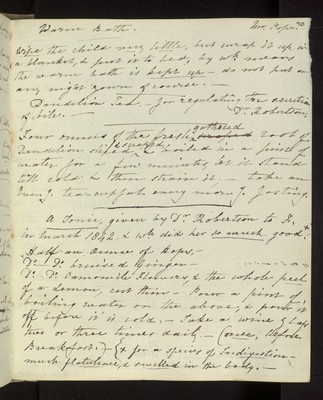 Warm Bath. Mrs. Hope. 30
wipe the child very little, but wrap it up in
a blanket, & put it to bed, by wh: means
the warm bath is kept up - do not put on
any night gown of course. -
Dandelion Tea - for regulating the secretion
of bile. - Dr. Robertson.
Four ounces of the fresh gathered root of
Dandelion sliced & boiled in a pint of
water for a few minutes, let it stand
till cold & then strain it. - take an
tea-cupful every morng. fasting.
A Tonic, given by Dr. Robertson to H.
in March 1842, & wh: did her so much good.
Half an Ounce of Hops,
Do. Do. bruised Ginger
Do. Do. Camomile Flowers, & the whole peel
of a Lemon, cut thin - Pour a pint of
boiling water on the above, & pour it
off before it is cold. - Take a wine glass
two or three times daily - (once, before
Breakfast.) - & for a species of Indigestion -
much flatulence, & swelled in the body. -